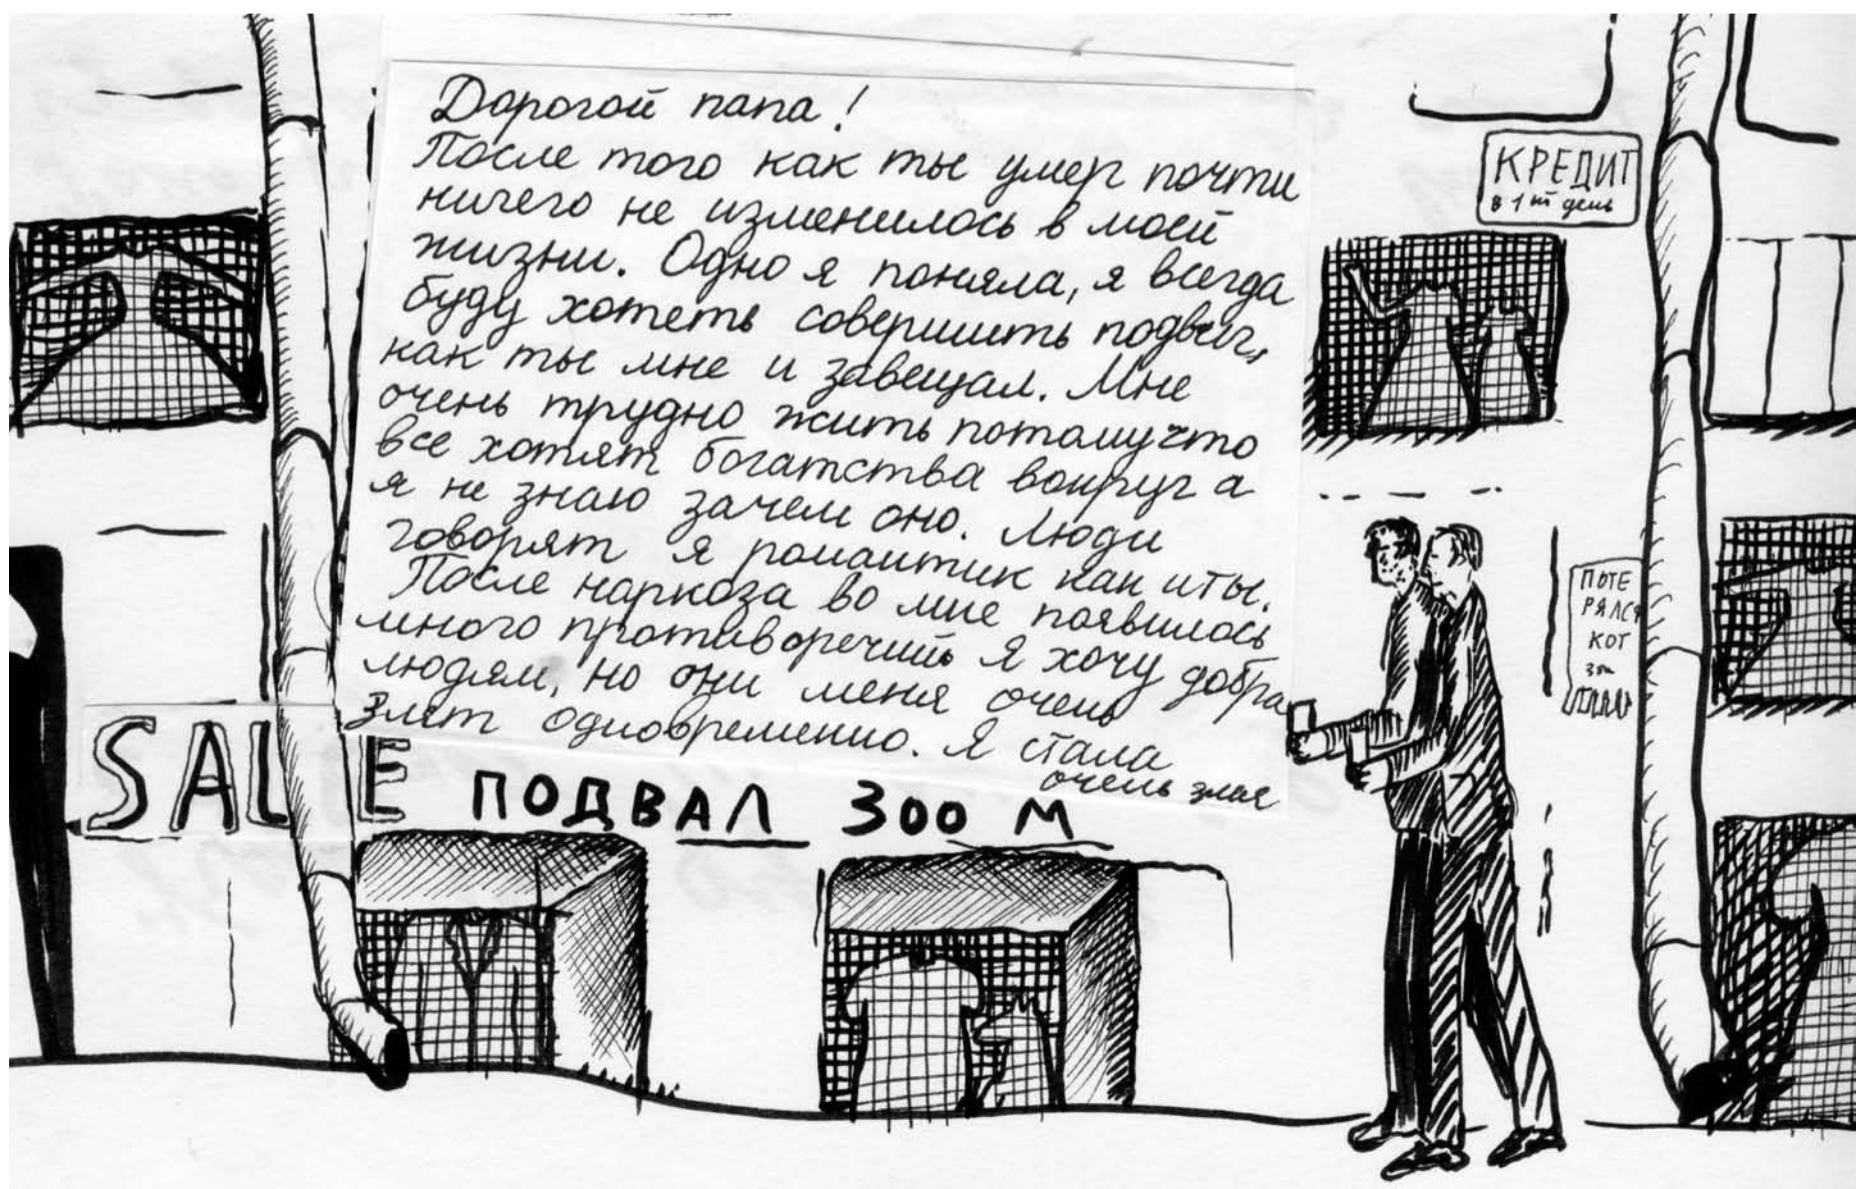 Дорогой папа!
После того как ты умер почти
ничего не изменилось в моей
жизни. Одно я поняла, я всегда
буду хотеть совершить подвиг,
как ты мне и завещал. Мне
очень трудно жить потомучто
все хотят богатства вокруг а
я не знаю зачем оно. Люди
говорят я романтик как и ты.
После наркоза во мне появилось
много противоречий я хочу добра
людям, но они меня очень
злят одновременно. Я стала
очень злая
КРЕДИТ
в 1ый день
ПОТЕ
РЯЛСЯ
КОТ
SALE ПОДВАЛ 300 М